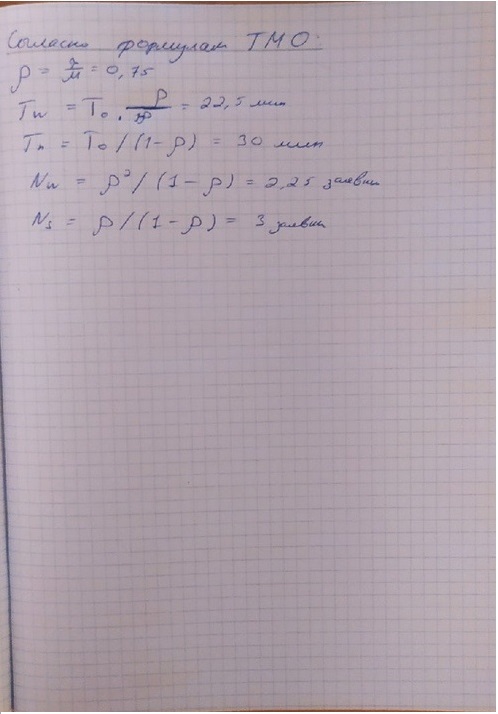 Согласно формулам ТМО:
ρ = λ/μ = 0,75
Tw = T₀ · ρ/ = 22,5 мин
Tп = T₀ / (1 - ρ) = 30 мин
Nw = ρ² / (1 - ρ) = 2,25 заявки
Ns = ρ / (1 - ρ) = 3 заявки